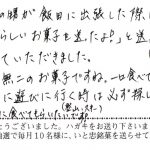 の甥が飯田に出張した際に
らしいお菓子を送ったよ!」と送
ていただきました。
無二のお菓子ですね。一口食べて
に遊びに行く時は必ず探し
に食べてもらいたいです
とうございました。ハガキをお送り下さいま
抽選で毎月10名様に、いと忠銘菓を送らせて